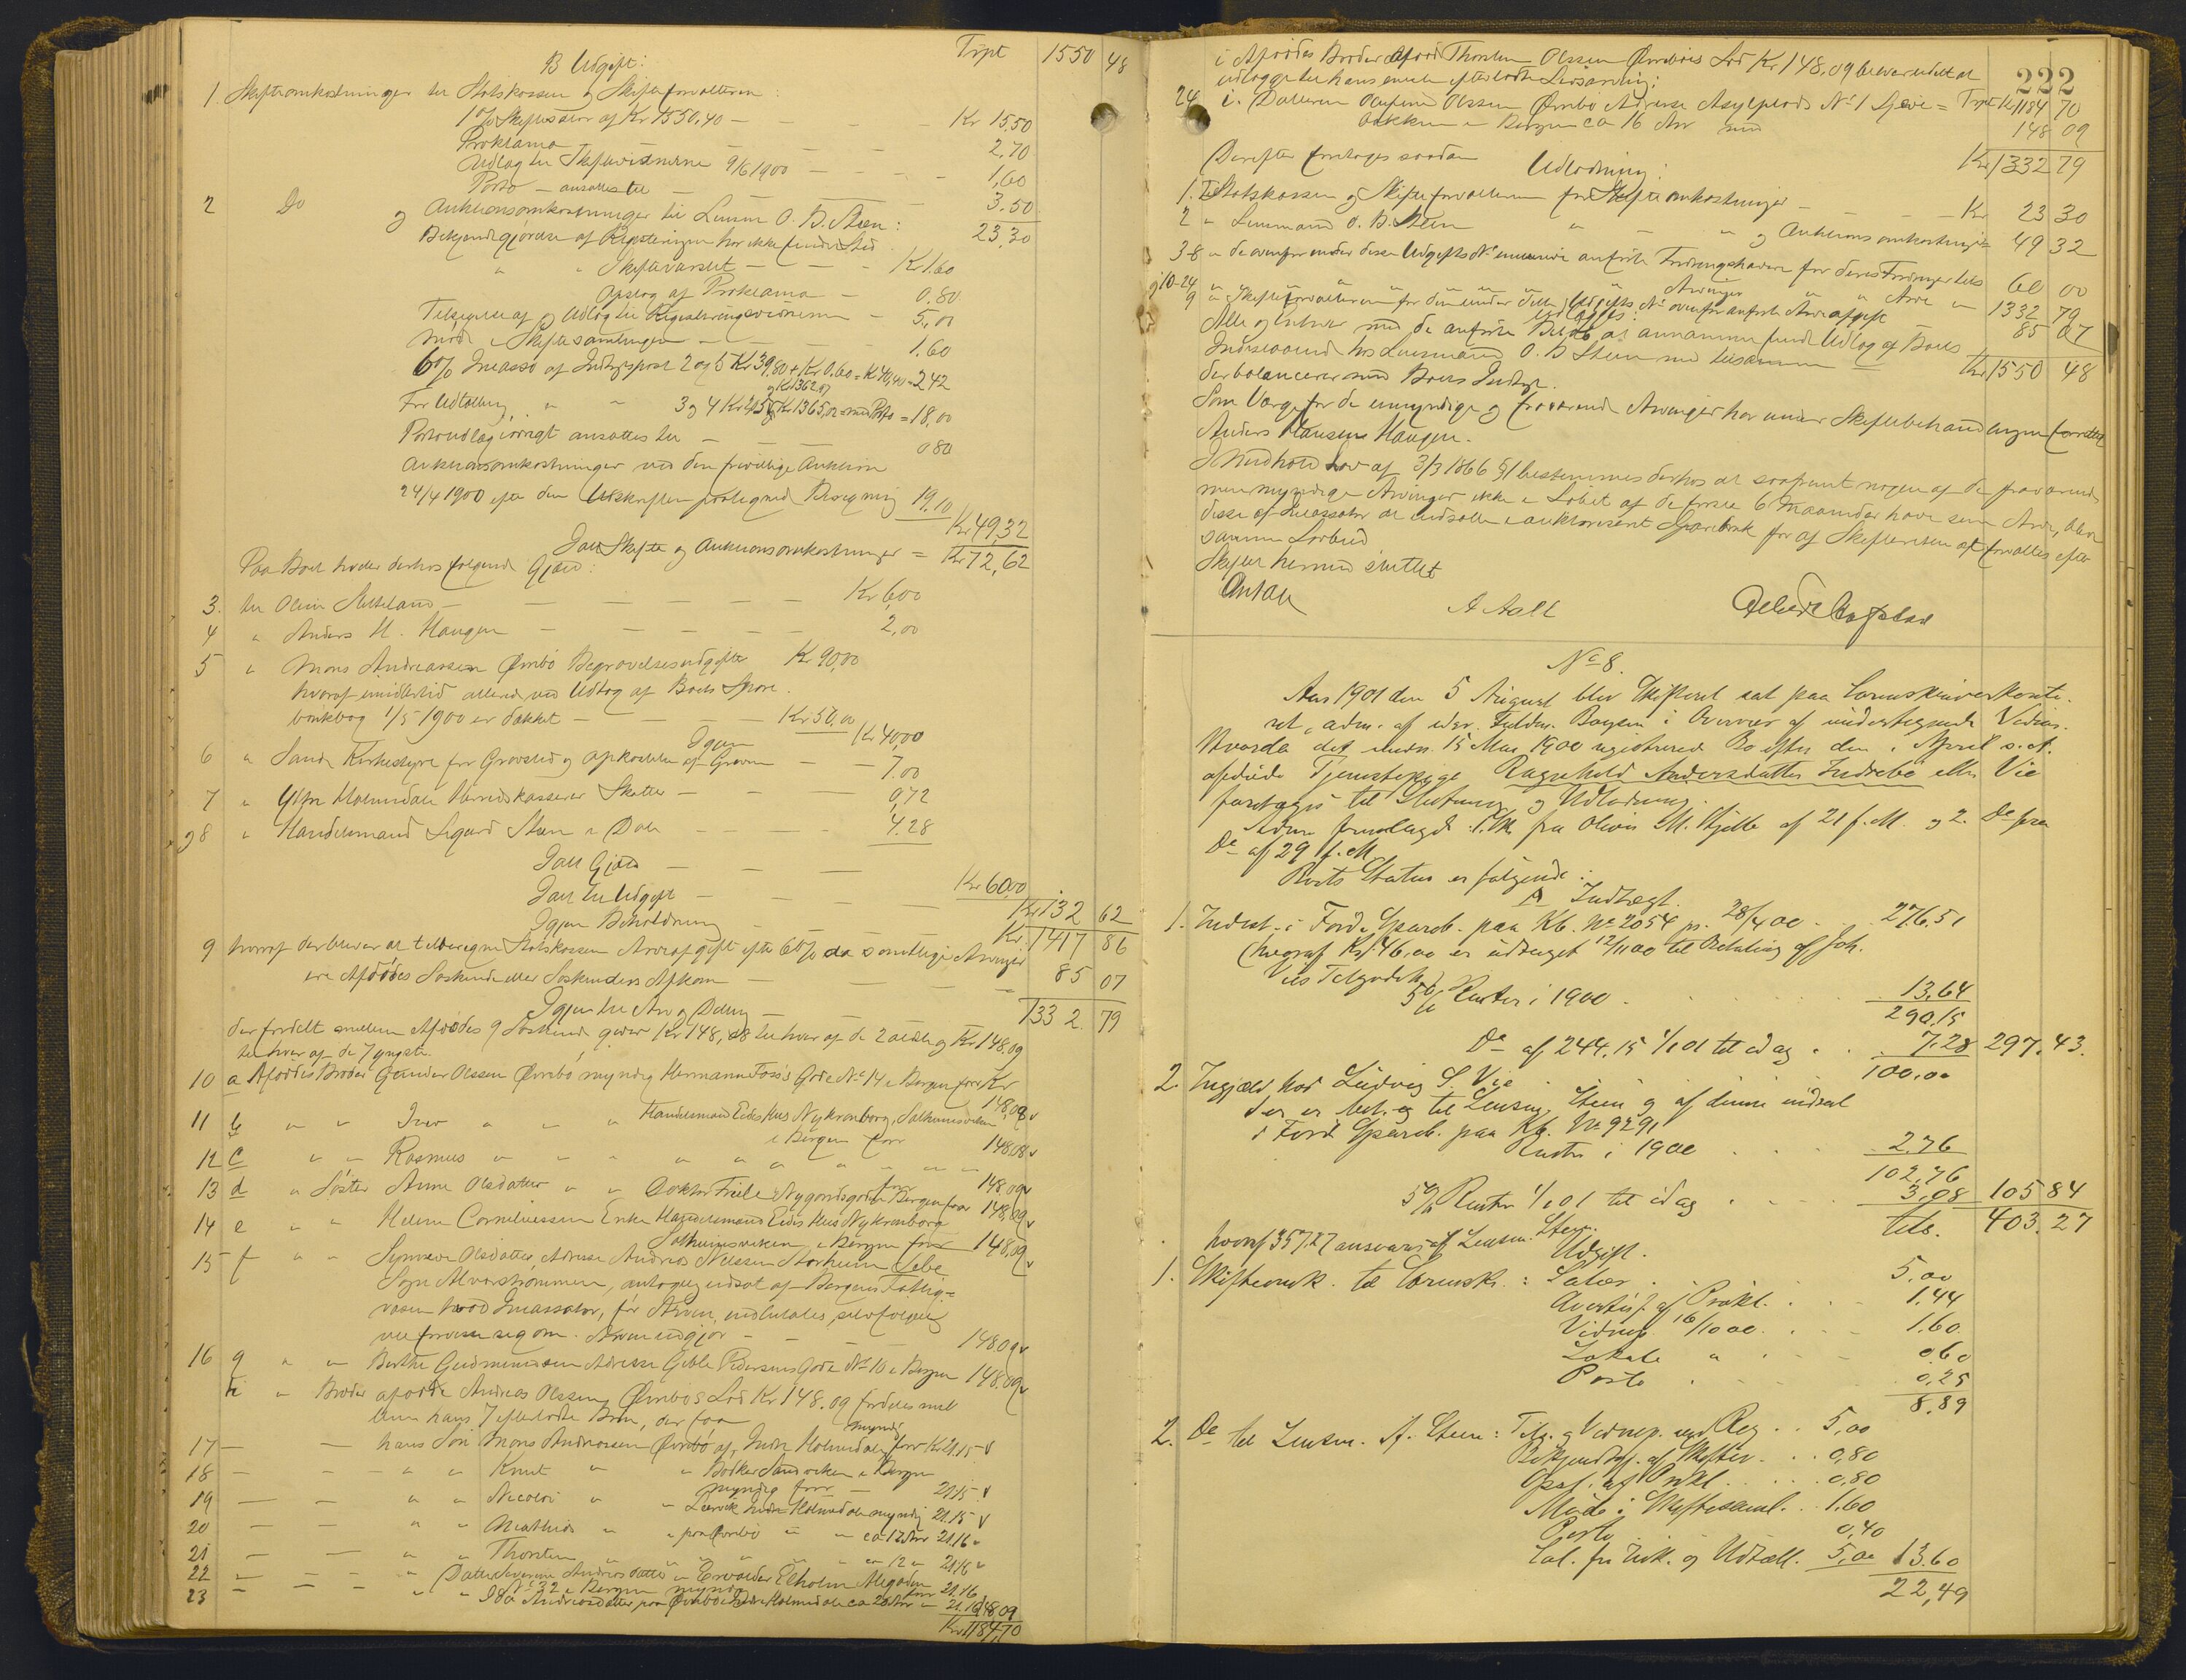 B Udgift:
Trpt 1550 48
1. Skifteomkostninger til Statskassen og Skifteforvalteren:
1% Skiftesalær af Kr 1550,40 — Kr 15.50
Proklama — 2.70
Udlæg til Skiftevidnerne 9/6 1900 — 1,60
Porto — ansættes til — 3.50
23,30
2 Do og Auktionsomkostninger til Lensm O. B. Steen:
Bekjendtgjørelse af Registeringen har ikke fundet Sted
" " Skiftevarslet — Kr 1.60
Opslag af Proklama — 0.80
Tilsigelse af og Udlæg til Registreringsvidnerne — 5,00
Møde i Skiftesamlingen — 1.60
6% Incasso af Indtægtspost 2 og 5 Kr 39,80 + Kr 0.60 = Kr 40,40 = 2.42
For Udtælling " " 3 og 4 = 18,00
Portoudlæg iøvrigt ansættes til — 0 80
Auktionsomkostninger ved den frivillige Auktion
24/4 1900 efter den Udskriften paategnede Beregning 19.10
Kr 49,32
Ialt Skifte og Auktionsomkostninger = Kr 72,62
Paa Boet hviler derhos følgende Gjæld:
3. til Oline — Kr 6,00
4 " Anders H. Haugen — 2,00
5 " Mons Andreassen Ørnbø Begravelsesudgifter Kr 90,00
hvoraf imidlertid allerede ved Udtog af Boets Spare-
bankbog 1/5 1900 er dækket — Kr 50,00
Igjen Kr 40,00
6 " Sande Kirkestyre for Gravsted og Opkastelse af Graven — 7.00
7 " Ytre Holmedals Herredskasserer Skatter — 0,72
og 8 " Handelsmand Sigurd Steen i Dale — 4.28
Ialt Gjæld — Kr 60,00
Ialt til Udgift — Kr 132 62
Igjen Beholdning — Kr. 1417 86
9 hvoraf der bliver at tilberegne Statskassen Arveafgift efter 6% da samtlige Arvinger
ere Afdødes Søskende eller Søskendes Afkom — 85 07
Igjen til Arv og Deling — 1332. 79
der fordelt mellem Afdødes 9 Søskende giver Kr 148,08 til hver af de 2 ældste og Kr 148.09
til hver af de 7 yngste.
10 a Afdødes Broder Gunder Olssen Ørnbø, myndig Hermann Foss's Gade No 14 i Bergen faar Kr 148,08 v
11 b " " Iver " " " Handelsmand Eides Hus Nykronborg, Solheimsviken
i Bergen faar 148.08 v
12 c " " Rasmus " " " " " " " " " faar 148.09 v
13 d " Søster Anne Olsdatter " " Doktor Friele Nygaardsgaden Bergen faar 148,09 v
14 e " " Helene Corneliussen Enke Handelsmand Eides Hus Nykronborg
Solheimsviken i Bergen faar 148,09 v
15 f " " Synneve Olsdatter, Adresse Andreas Nelssen Storheim Sebe
Sogn Alverstrømmen, antagelig udsat af Bergens Fattig-
væsen hvad Incassator, før Arven udbetales, selvfølgelig
vil forvisse sig om. Arven udgjør — 148.09 v
16 g " " Berthe Gudmundsen Adresse Geble Pedersens Gade No 10 i Bergen 148.09 v
h " Broder afdøde Andreas Olssen Ørnbø's Lod Kr 148.09 fordeles mel-
lem hans 7 efterladte Børn, der faa
17 — — hans Søn Mons Andreassen Ørnbø af Indre Holmedal myndig faar Kr 21.15 v
18 — — " " Knut " " Bødker Sandviken i Bergen
myndig faar — 21.15 v
19 — — " " Nicolai " " Leervik Indre Holmedal myndig 21.15 v
20 — — " " Mathias " " paa Ørnbø " " ca 17 Aar 21.16 "
21 — — " " Thorsten " " " " " ca 12 " 21.16 "
22 — — " Datter Severine Andreasdatter
No 32 i Bergen myndig faar 21.16
23 — — " " Ida Andreasdatter paa Ørnbø Indre Holmedal ca 20 Aar — 21.16 148.09
Kr 1184,70
222
i Afdødes Broder afdøde Thorsten Olssen Ørnbøs Lod Kr 148,09 bliver udelt at
udlægge til hans eneste efterladte Livsarving:
24 i. Datteren Olufine Olssen Ørnbø Adresse Asylplads No 1 Trpt Kr 1184 70
i Bergen ca 16 Aar med 148 09
Kr 1332 79
Derefter foretages saadan Udlodning:
1. Til Statskassen og Skifteforvalteren for Skifteomkostninger — Kr 23 30
2 " Lensmand O. B. Steen " " " og Auktionsomkostninger 49 32
3-8 " de ovenfor under disse Udgifts No nævnte anførte Fordringshavere for deres Fordringer tils 60 00
og 10-24 " " " " " " Arvinger " " Arve " 1332 79
9 " Skifteforvalteren for den under dette Udgifts No ovenfor anførte Arveafgift 85 07
Alle og enhver med de anførte Beløb at annamme fundt Udlæg af Boets
Indestaaende hos Lensmand O. B Steen med tilsammen — Kr 1550 48
der balancerer med Boets Indtægt.
Som Værge for de umyndige og fraværende Arvinger har under Skiftebehandlingen fungeret
Anders Hansen Haugen.
I Medhold Lov af 3/3 1866 §1 bestemmes derhos at saafremt nogen af de fraværende
men myndige Arvinger ikke i Løbet af de første 6 Maaneder hæve sin Arv, bliver
disse af Incassator at indsætte i auktoriseret Sparebank for af Skifteretten at forvaltes efter
samme Lovbud
Skiftet hermed sluttet
A Aall
No 8.
Aar 1901 den 5 August blev Skifteret sat paa Sorenskriverkonto-
ret, adm. af edsv. Fuldm. Boysen i Overvær af undertegnede Vidner.
Hvorda det under 15 Mai 1900 registrerede Bo efter den i April s. A.
afdøde Tjenestepige Ragnhild Andersdatter Indrebø eller Vie
foretages til Slutning og Udlodning.
Adm. fremlagde 1. Skr. fra Oliver M. Hjelle af 21 f. M. og 2. Do fra
Do af 29 f. M.
Boets Status er følgende:
A Indtægt.
1. Indest. i Førde Spareb. paa Kb. No 2054 pr. 28/4 00 . . 276.51
(hvoraf Kr. 46,00 er udtaget 12/11 00 til Betaling af Joh.
Vies Tilgodeh.)
5% Renter i 1900 . . . 13,64
290,15
Do af 244.15 1/1 01 til idag . . 7.28 297.43.
2. Ingjæld hos Ludvig S. Vie . . 100,00
der er bet. og til Lensm. Steen og af denne indsat
i Førde Spareb. paa Kb. No 9291
Renter i 1900 . . . 2.76
102,76
5% Renter 1/1 01 til idag . . 3,08 105 84
tils. 403.27
hvoraf 357.27 ansvares af Lensm. Steen.
Udgift.
1. Skifteomk. til Sorenskr.: Salær . . 5,00
Avertisj. af Prokl. . . . 1.44
Vidnep. 16/10 00 . . . 1.60
Lokale " . . . 0.60
Porto . . . 0,25
8,89
2. Do til Lensm. A. Steen: Tils. og Vidnep. ved Reg. . . 5,00
Bekjendtgj. af Skiftev. . . . 0,80
Opsl. af Prokl. . . . 0,80
Møde i Skiftesaml. . . 1.60
Porto 0,40
Sal. for Ink. og Udtæll. 5,00 13,60
22,49